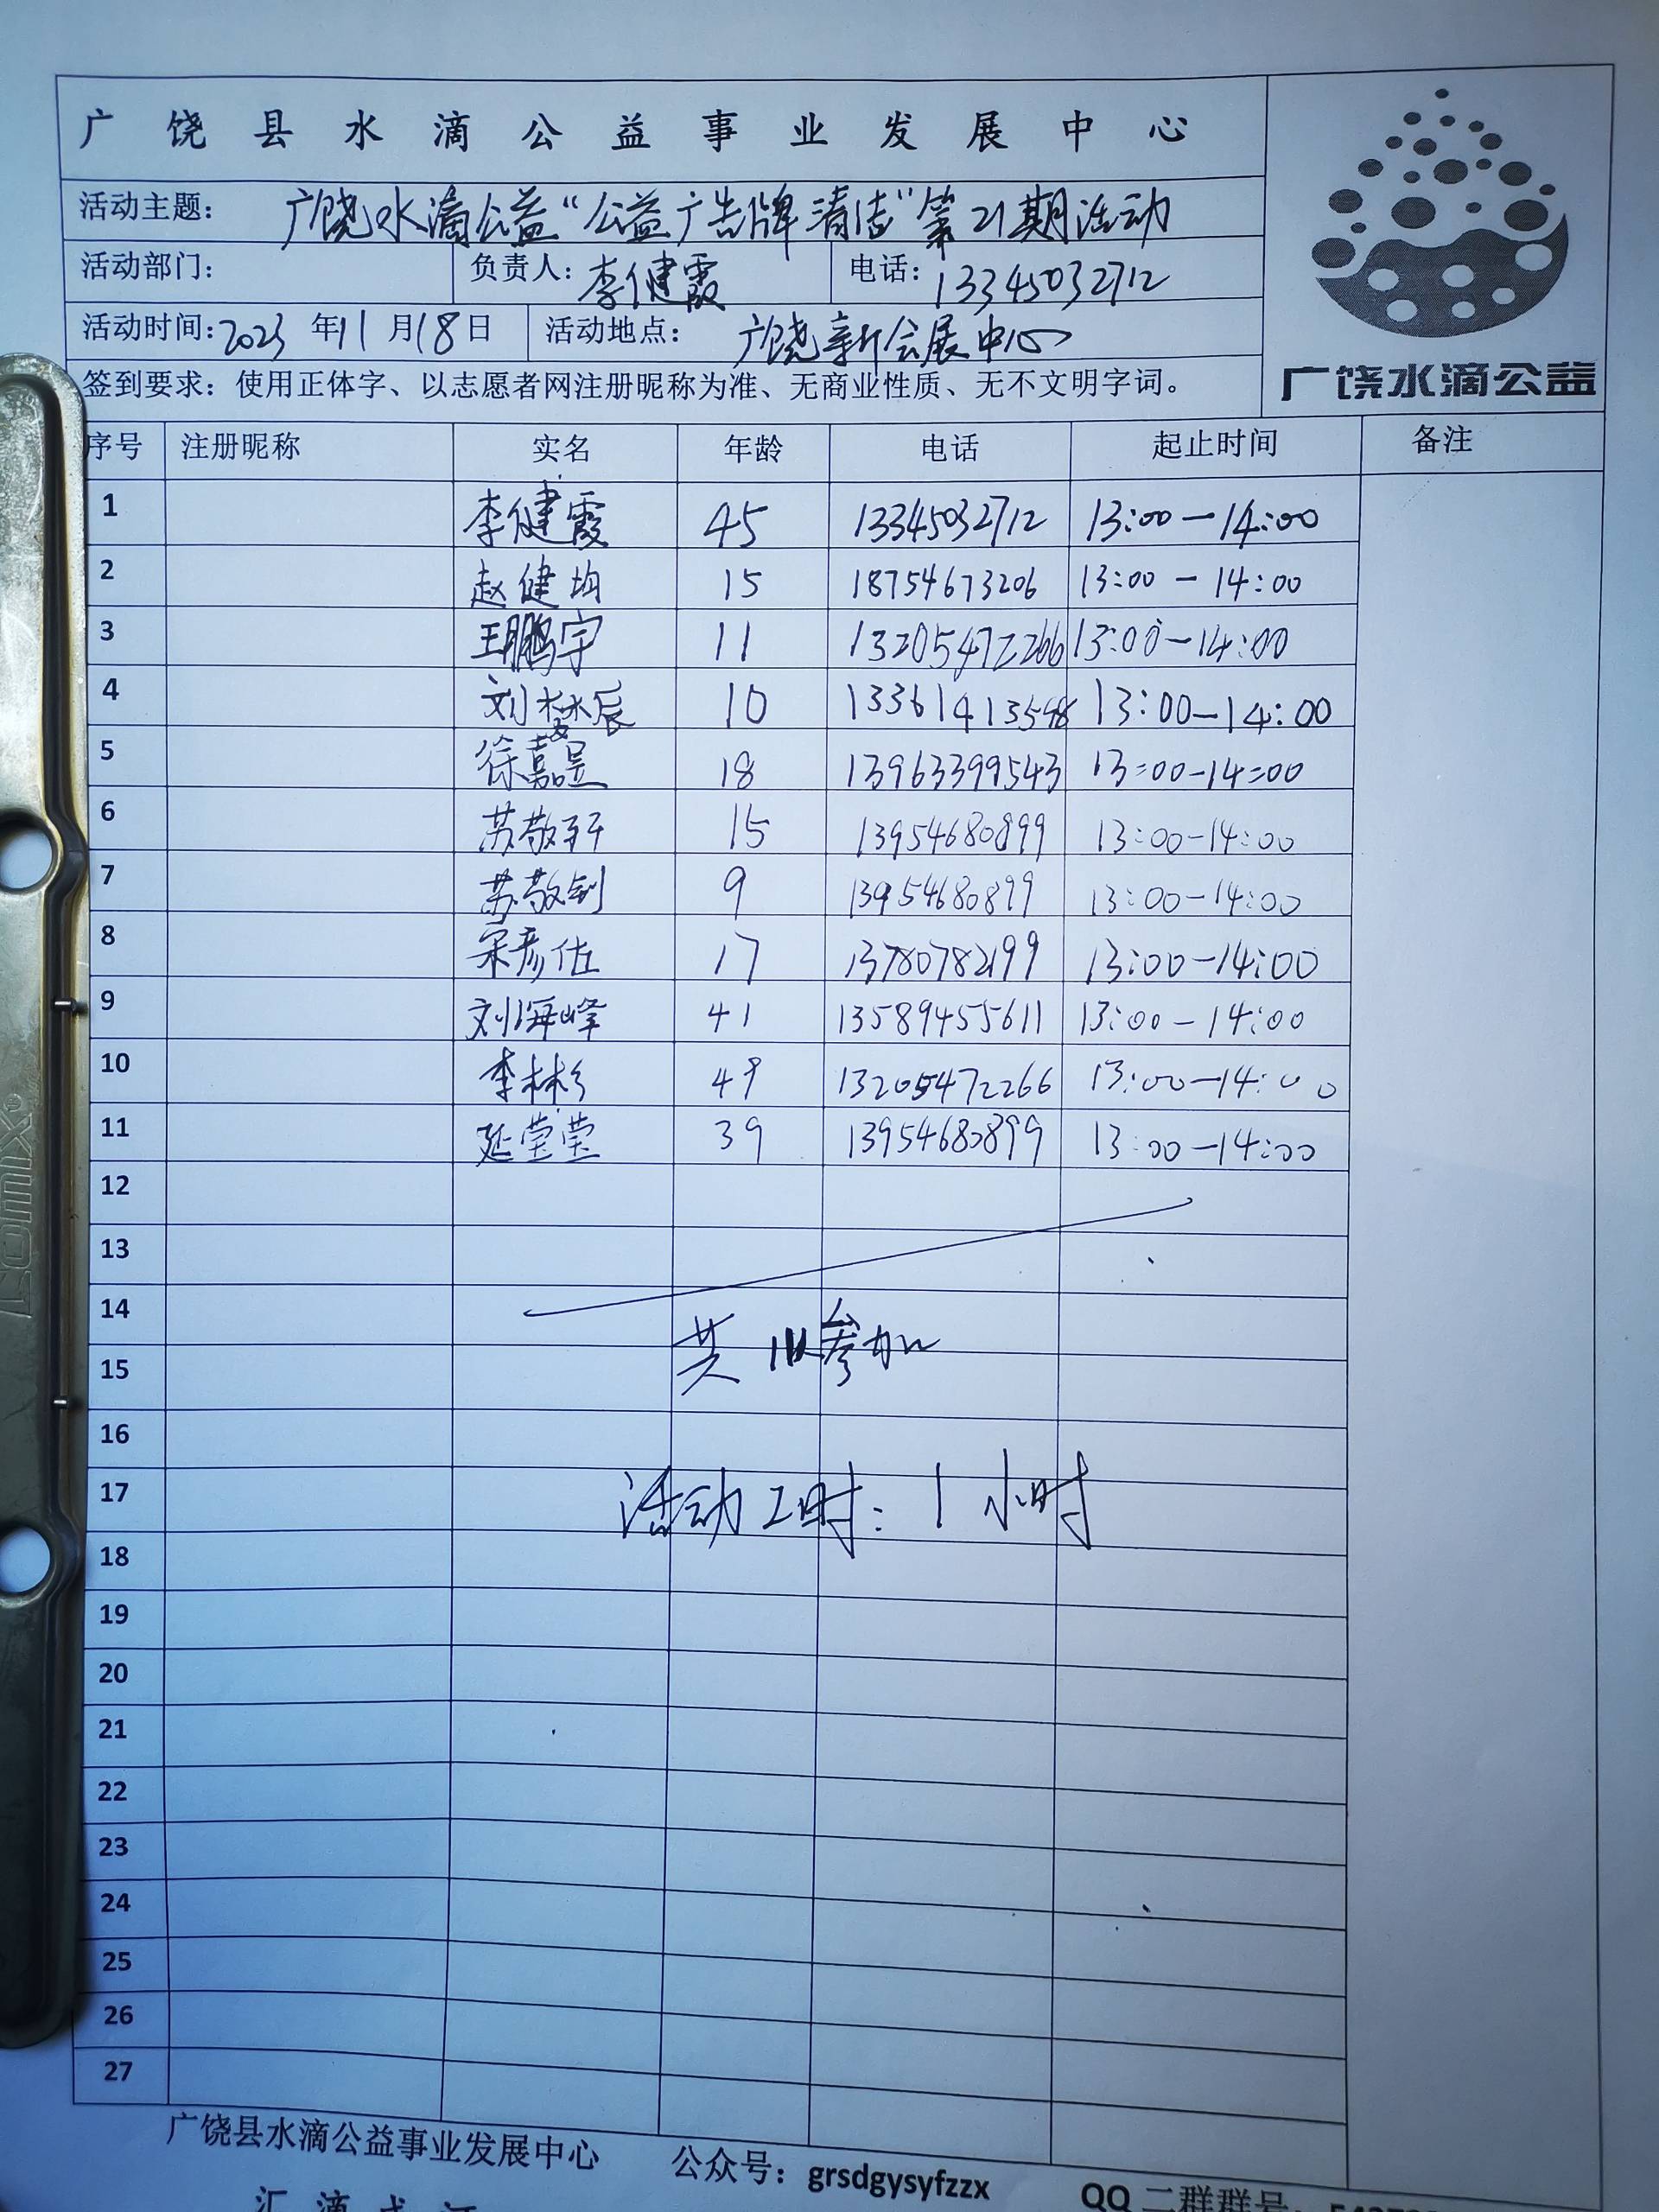 广饶县水滴公益事业发展中心
活动主题: 广饶水滴公益“公益广告牌清洁”第21期活动
活动部门: 负责人: 李健霞 电话: 13345032712
活动时间: 2023 年 11 月 18 日 活动地点: 广饶新会展中心
签到要求: 使用正体字、以志愿者网注册昵称为准、无商业性质、无不文明字词。
广饶水滴公益
序号 注册昵称 实名 年龄 电话 起止时间 备注
1 李健霞 45 13345032712 13:00-14:00
2 赵健均 15 18754673206 13:00-14:00
3 王鹏宇 11 13205472266 13:00-14:00
4 10 13:00-14:00
5 徐嘉昱 18 13963399543 13=00-14=00
6 15 13954680899 13:00-14:00
7 苏敬钊 9 13954680899 13:00-14:00
8 宋彦佐 17 13780782199 13:00-14:00
9 刘海峰 41 13589455611 13:00-14:00
10 李林杉 49 13205472266 13:00-14:00
11 延莹莹 39 13954680899 13:00-14:00
12
13
14
共 11人参加
15
16
17 活动工时: 1 小时
18
19
20
21
22
23
24
25
26
27
广饶县水滴公益事业发展中心 公众号: grsdgysyfzzx QQ 二群群号:
COMIX